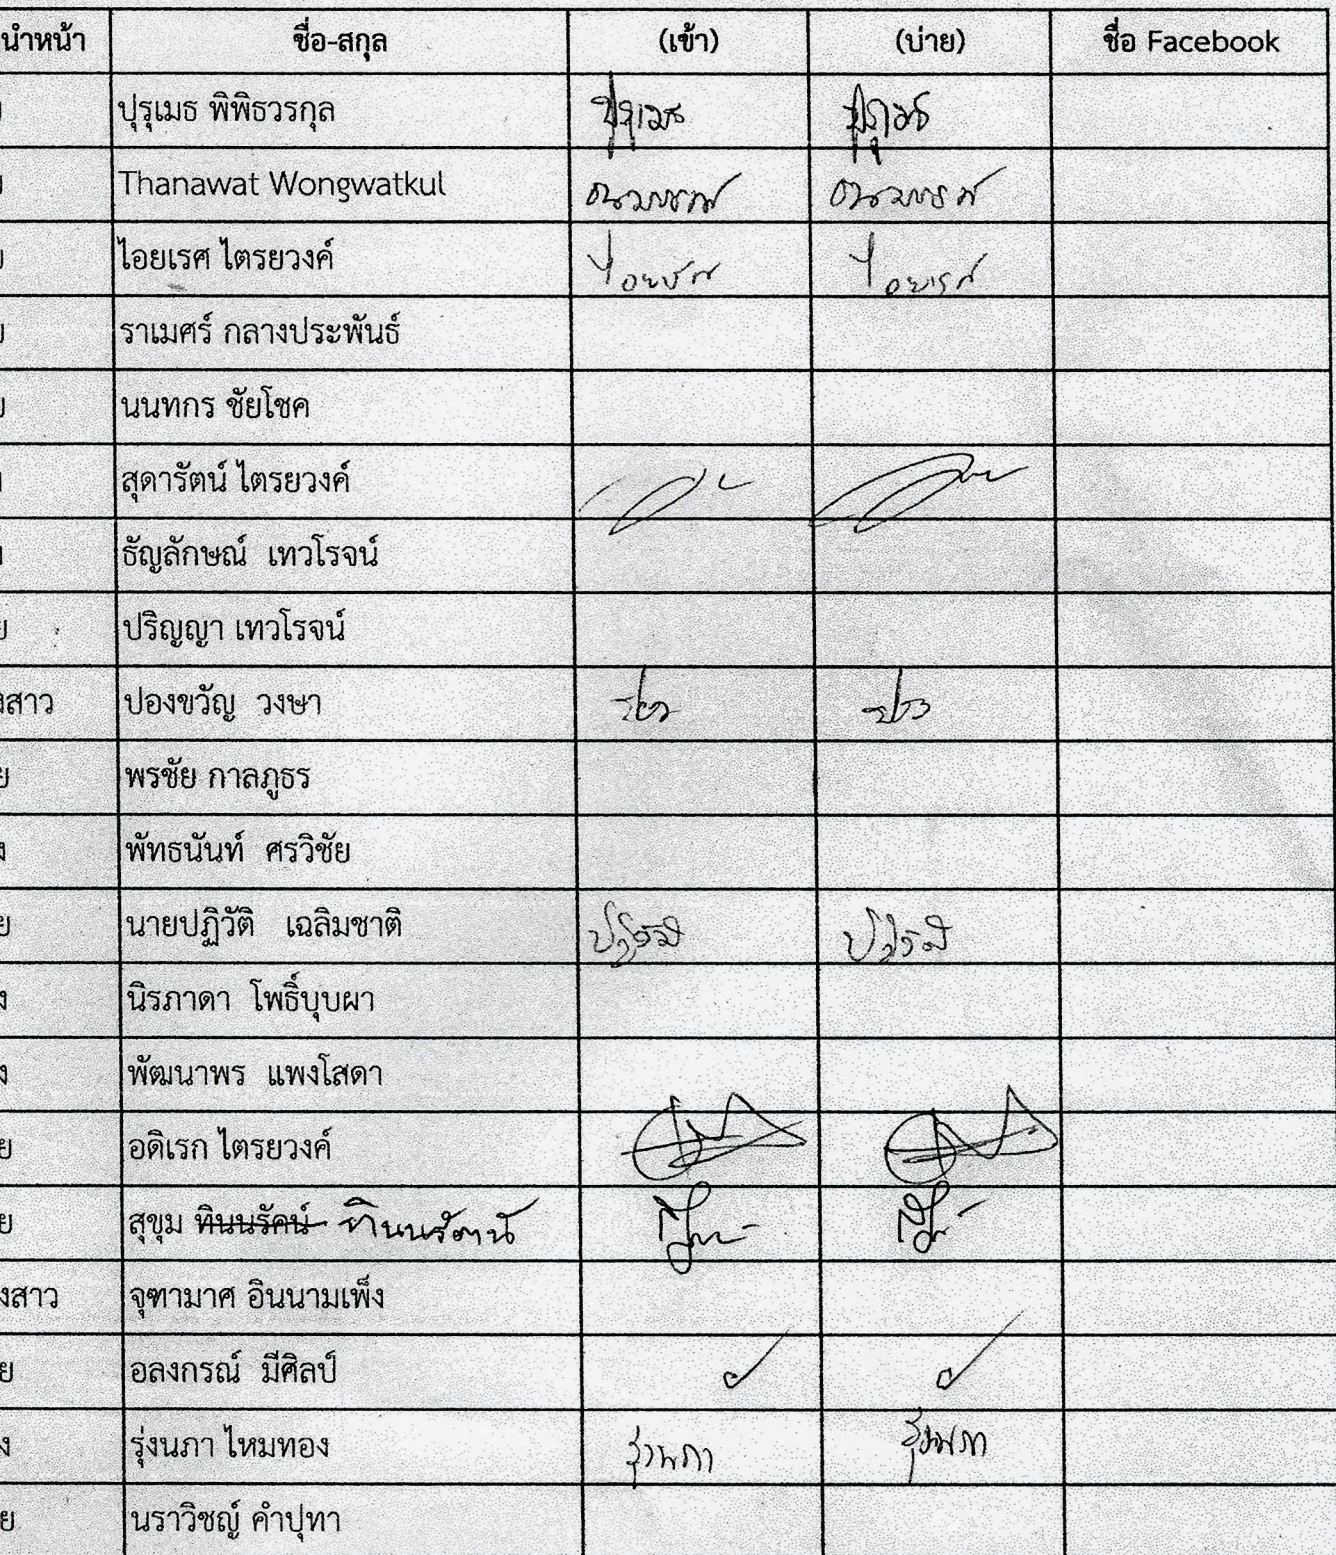 นำหน้า ชื่อ-สกุล (เข้า) (บ่าย) ชื่อ Facebook
ปุรุเมธ พิพิธวรกุล ปุรุเมธ ปุรุเมธ
Thanawat Wongwatkul
ย ไอยเรศ ไตรยวงค์ ไอยเรศ ไอยเรศ
ย ราเมศร์ กลางประพันธ์
ย นนทกร ชัยโชค
สุดารัตน์ ไตรยวงค์
ธัญลักษณ์ เทวโรจน์
ย ปริญญา เทวโรจน์
งสาว ปองขวัญ วงษา
ย พรชัย กาลภูธร
ง พัทธนันท์ ศรวิชัย
ย นายปฏิวัติ เฉลิมชาติ ปฏิวัติ ปฏิวัติ
ง นิรภาดา โพธิ์บุบผา
ง พัฒนาพร แพงโสดา
ย อดิเรก ไตรยวงค์
ย สุขุม ทินนรัคน์ ทินนรัตน์
งสาว จุฑามาศ อินนามเพ็ง
ย อลงกรณ์ มีศิลป์
ง รุ่งนภา ไหมทอง รุ่งนภา รุ่งนภา
ย นราวิชญ์ คำปุทา